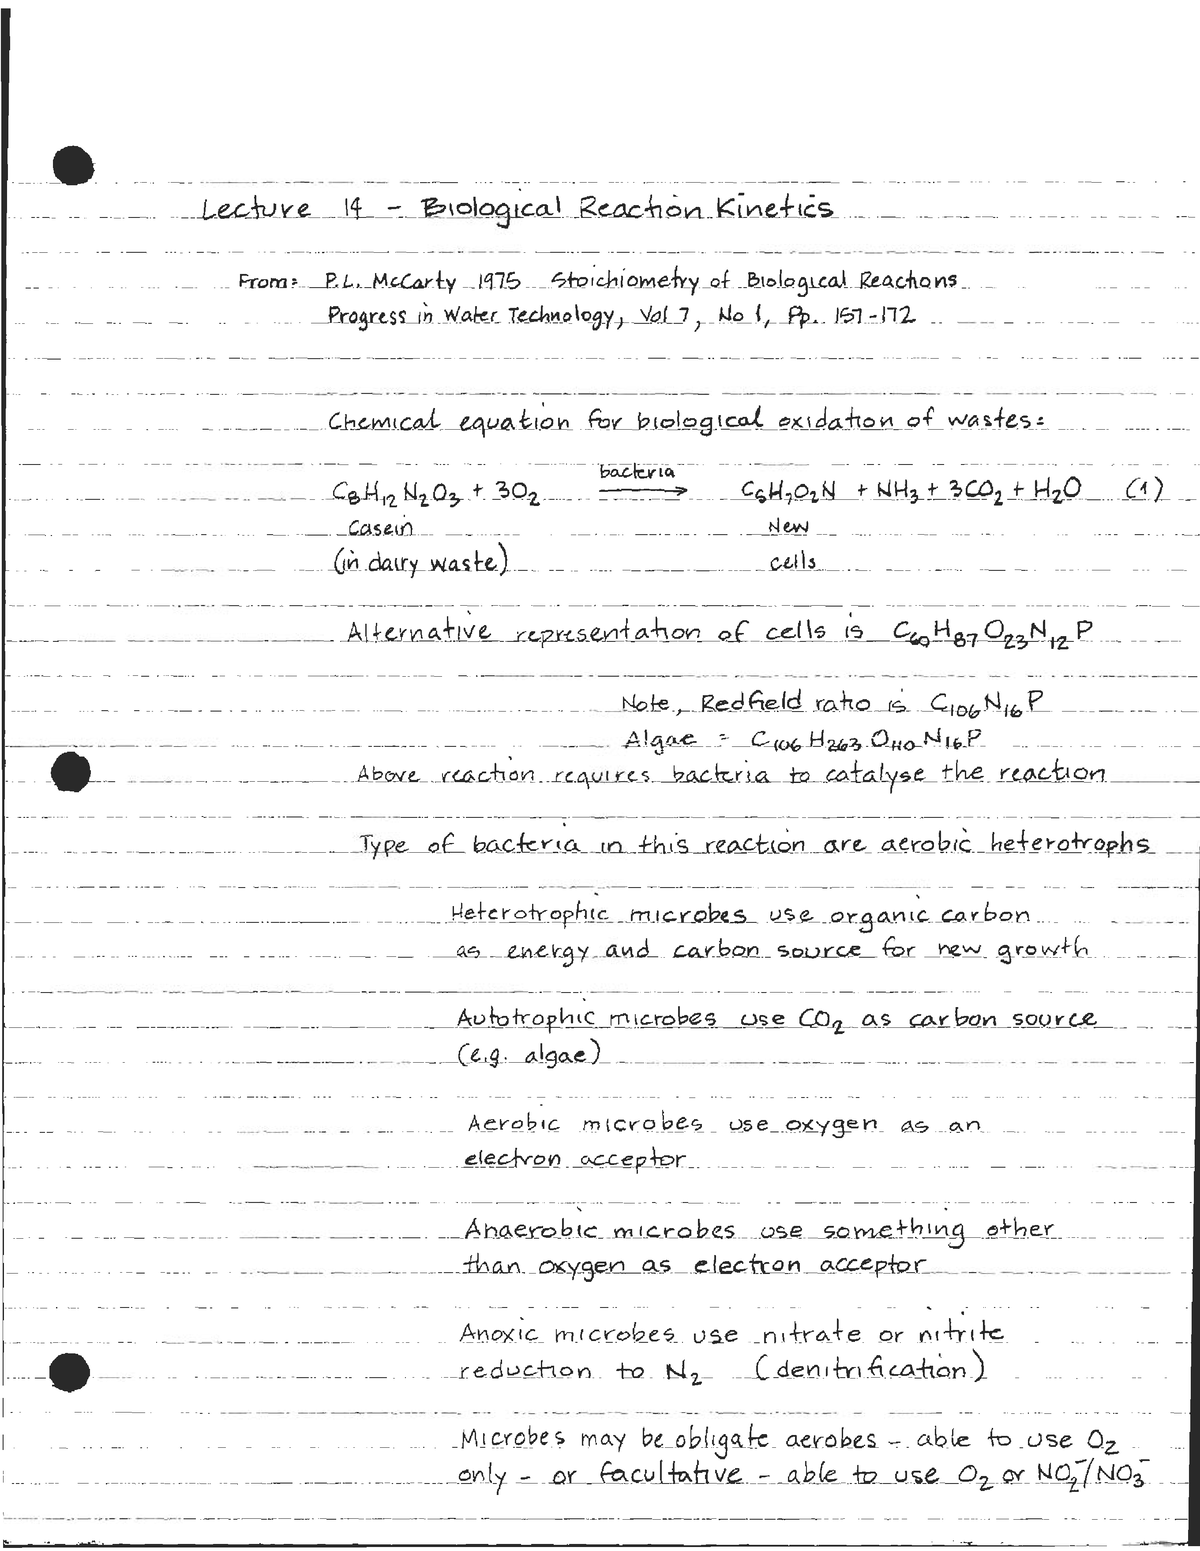 Lecture 14 - Biological Reaction Kinetics
From: P.L. McCarty 1975 Stoichiometry of Biological Reactions
Progress in Water Technology, Vol 7, No 1, Pp. 157-172
Chemical equation for biological oxidation of wastes:
bacteria
C₈H₁₂N₂O₃ + 3O₂ ⟶ C₅H₇O₂N + NH₃ + 3CO₂ + H₂O (1)
Casein New
(in dairy waste) cells
Alternative representation of cells is C₆₀H₈₇O₂₃N₁₂P
Note, Redfield ratio is C₁₀₆N₁₆P
Algae = C₁₀₆H₂₆₃O₁₁₀N₁₆P
Above reaction requires bacteria to catalyse the reaction
Type of bacteria in this reaction are aerobic heterotrophs
Heterotrophic microbes use organic carbon
as energy and carbon source for new growth
Autotrophic microbes use CO₂ as carbon source
(e.g. algae)
Aerobic microbes use oxygen as an
electron acceptor
Anaerobic microbes use something other
than oxygen as electron acceptor
Anoxic microbes use nitrate or nitrite
reduction to N₂ (denitrification)
Microbes may be obligate aerobes - able to use O₂
only - or facultative - able to use O₂ or NO₂⁻/NO₃⁻